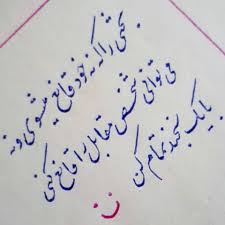 بحثی را که نه خود قانع میشوی و نه
می توانی شخص مقابل را قانع کنی
با یک لبخند تمام کن